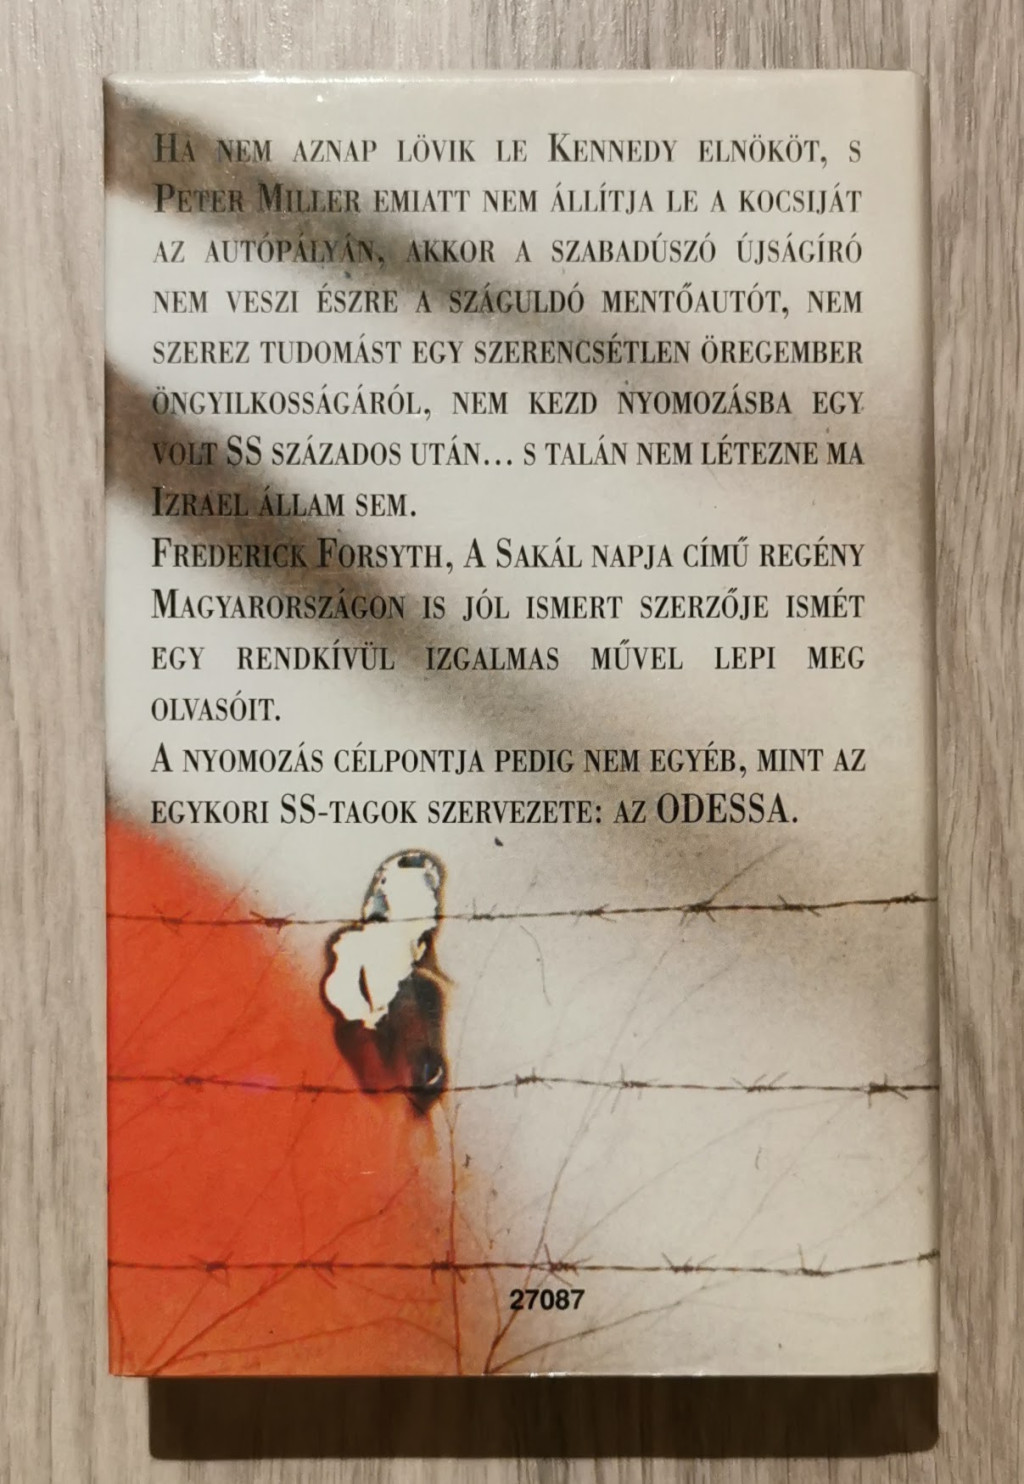 HA NEM AZNAP LÖVIK LE KENNEDY ELNÖKÖT, S
PETER MILLER EMIATT NEM ÁLLÍTJA LE A KOCSIJÁT
AZ AUTÓPÁLYÁN, AKKOR A SZABADÚSZÓ ÚJSÁGÍRÓ
NEM VESZI ÉSZRE A SZÁGULDÓ MENTŐAUTÓT, NEM
SZEREZ TUDOMÁST EGY SZERENCSÉTLEN ÖREGEMBER
ÖNGYILKOSSÁGÁRÓL, NEM KEZD NYOMOZÁSBA EGY
VOLT SS SZÁZADOS UTÁN... S TALÁN NEM LÉTEZNE MA
IZRAEL ÁLLAM SEM.
FREDERICK FORSYTH, A SAKÁL NAPJA CÍMŰ REGÉNY
MAGYARORSZÁGON IS JÓL ISMERT SZERZŐJE ISMÉT
EGY RENDKÍVÜL IZGALMAS MŰVEL LEPI MEG
OLVASÓIT.
A NYOMOZÁS CÉLPONTJA PEDIG NEM EGYÉB, MINT AZ
EGYKORI SS-TAGOK SZERVEZETE: AZ ODESSA.
27087